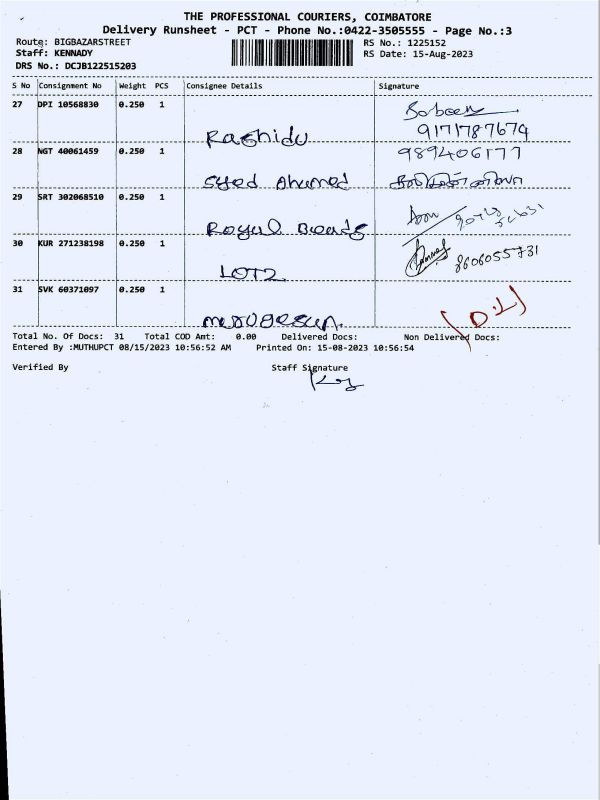 THE PROFESSIONAL COURIERS, COIMBATORE
Delivery Runsheet - PCT - Phone No.:0422-3505555 - Page No.:3
Route: BIGBAZARSTREET
RS No.: 1225152
Staff: KENNADY
RS Date: 15-Aug-2023
DRS No.: DCJB122515203
S No Consignment No Weight PCS Consignee Details Signature
27 DPI 10568830 0.250 1
Rashidu 9171787674
28 NGT 40061459 0.250 1 989406177
Syed Ahamed
29 SRT 302068510 0.250 1
Royal
30 KUR 271238198 0.250 1 8606055731
LOT2
31 SVK 60371097 0.250 1
Total No. Of Docs: 31 Total COD Amt: 0.00 Delivered Docs: Non Delivered Docs:
Entered By :MUTHUPCT 08/15/2023 10:56:52 AM Printed On: 15-08-2023 10:56:54
Verified By Staff Signature